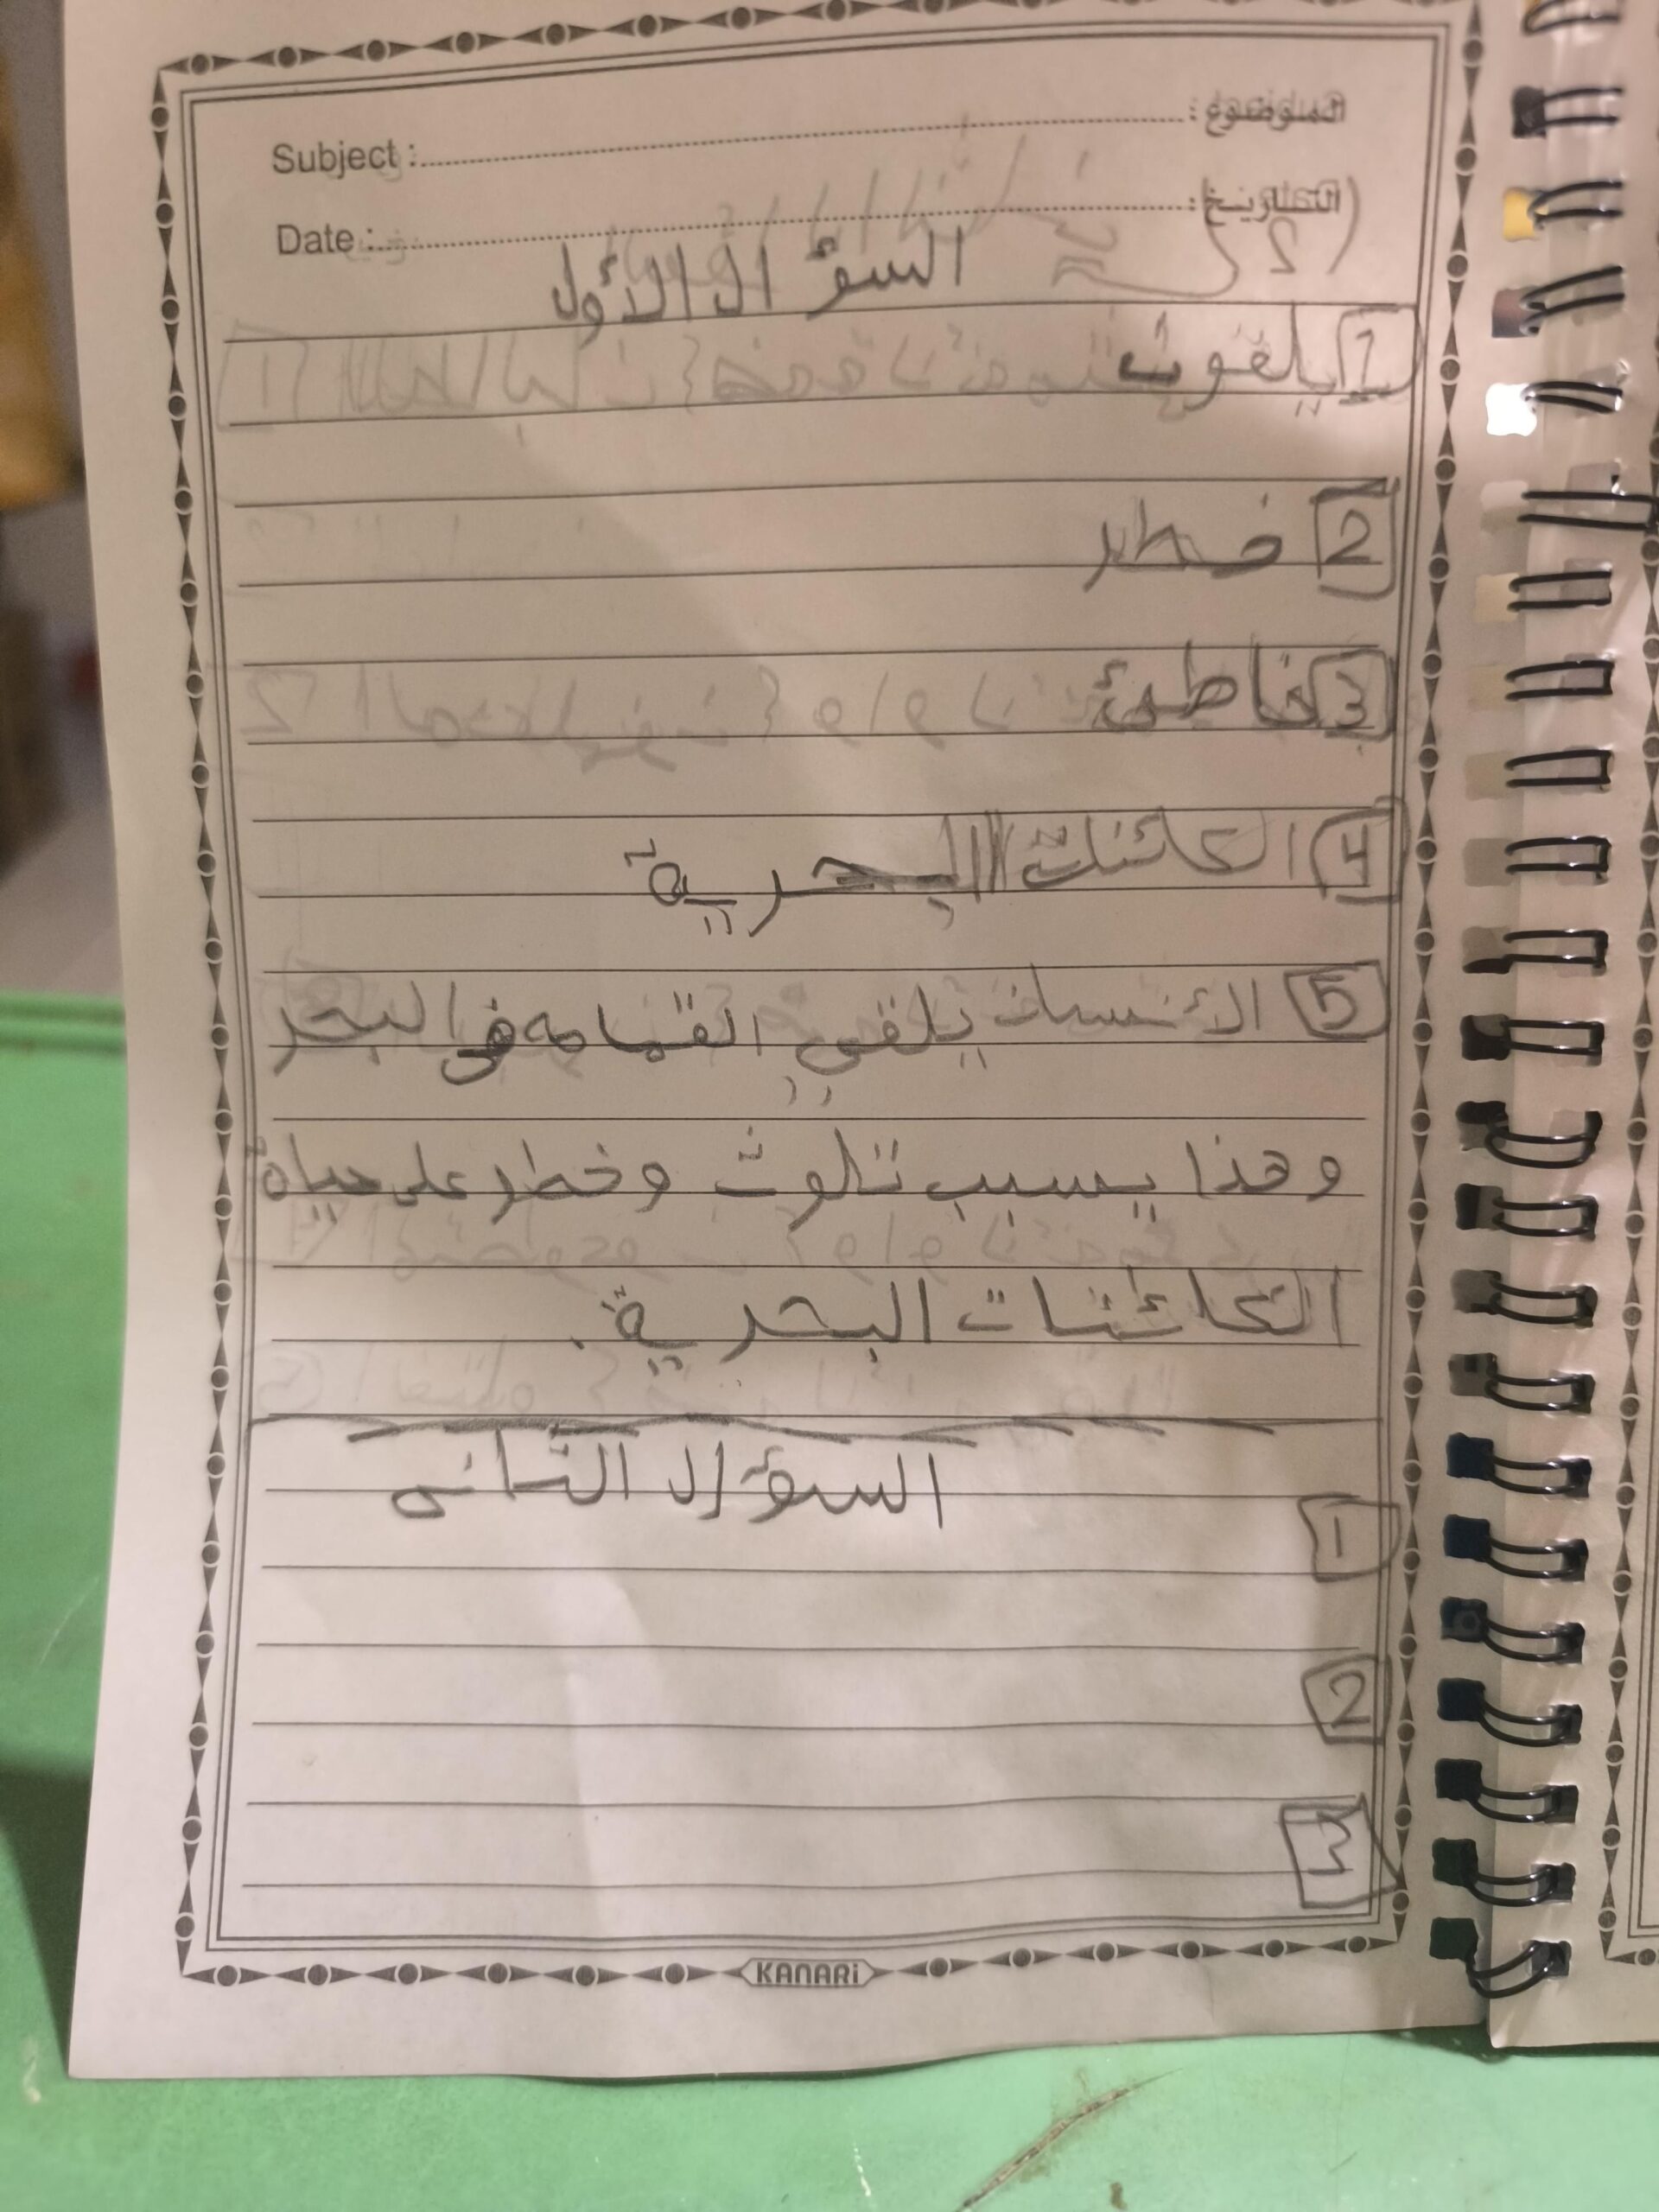 Subject : الموضوع :
Date : التاريخ :
السؤال الأول
1 يلقون
2 خطر
3 خاطئ
4 الكائنات البحرية
5 الأنسان يلقي القمامه في البحر
وهذا يسبب تلوث وخطر على حياة
الكائنات البحرية.
السؤال الثاني
1
2
3
KANARI